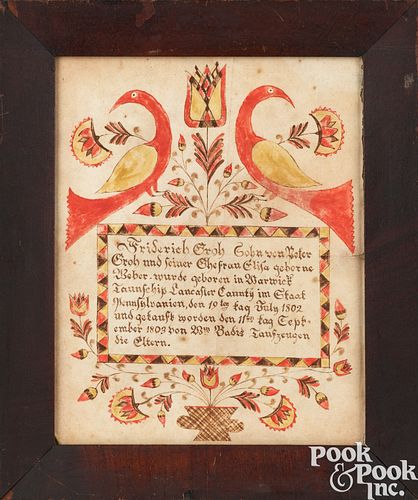 Friderich Groh Sohn von Peter
Groh und seiner Ehefrau Elisa geborne
Weber. wurde geboren in Warwick
Taunschip Lancaster Caunty im Staat
Pennsylvanien, den 19ten tag July 1802
und getauft worden den 11ten tag Sept-
ember 1803 von Wm Badis Taufzeugen
die Eltern.
POOK
& POOK
Inc.